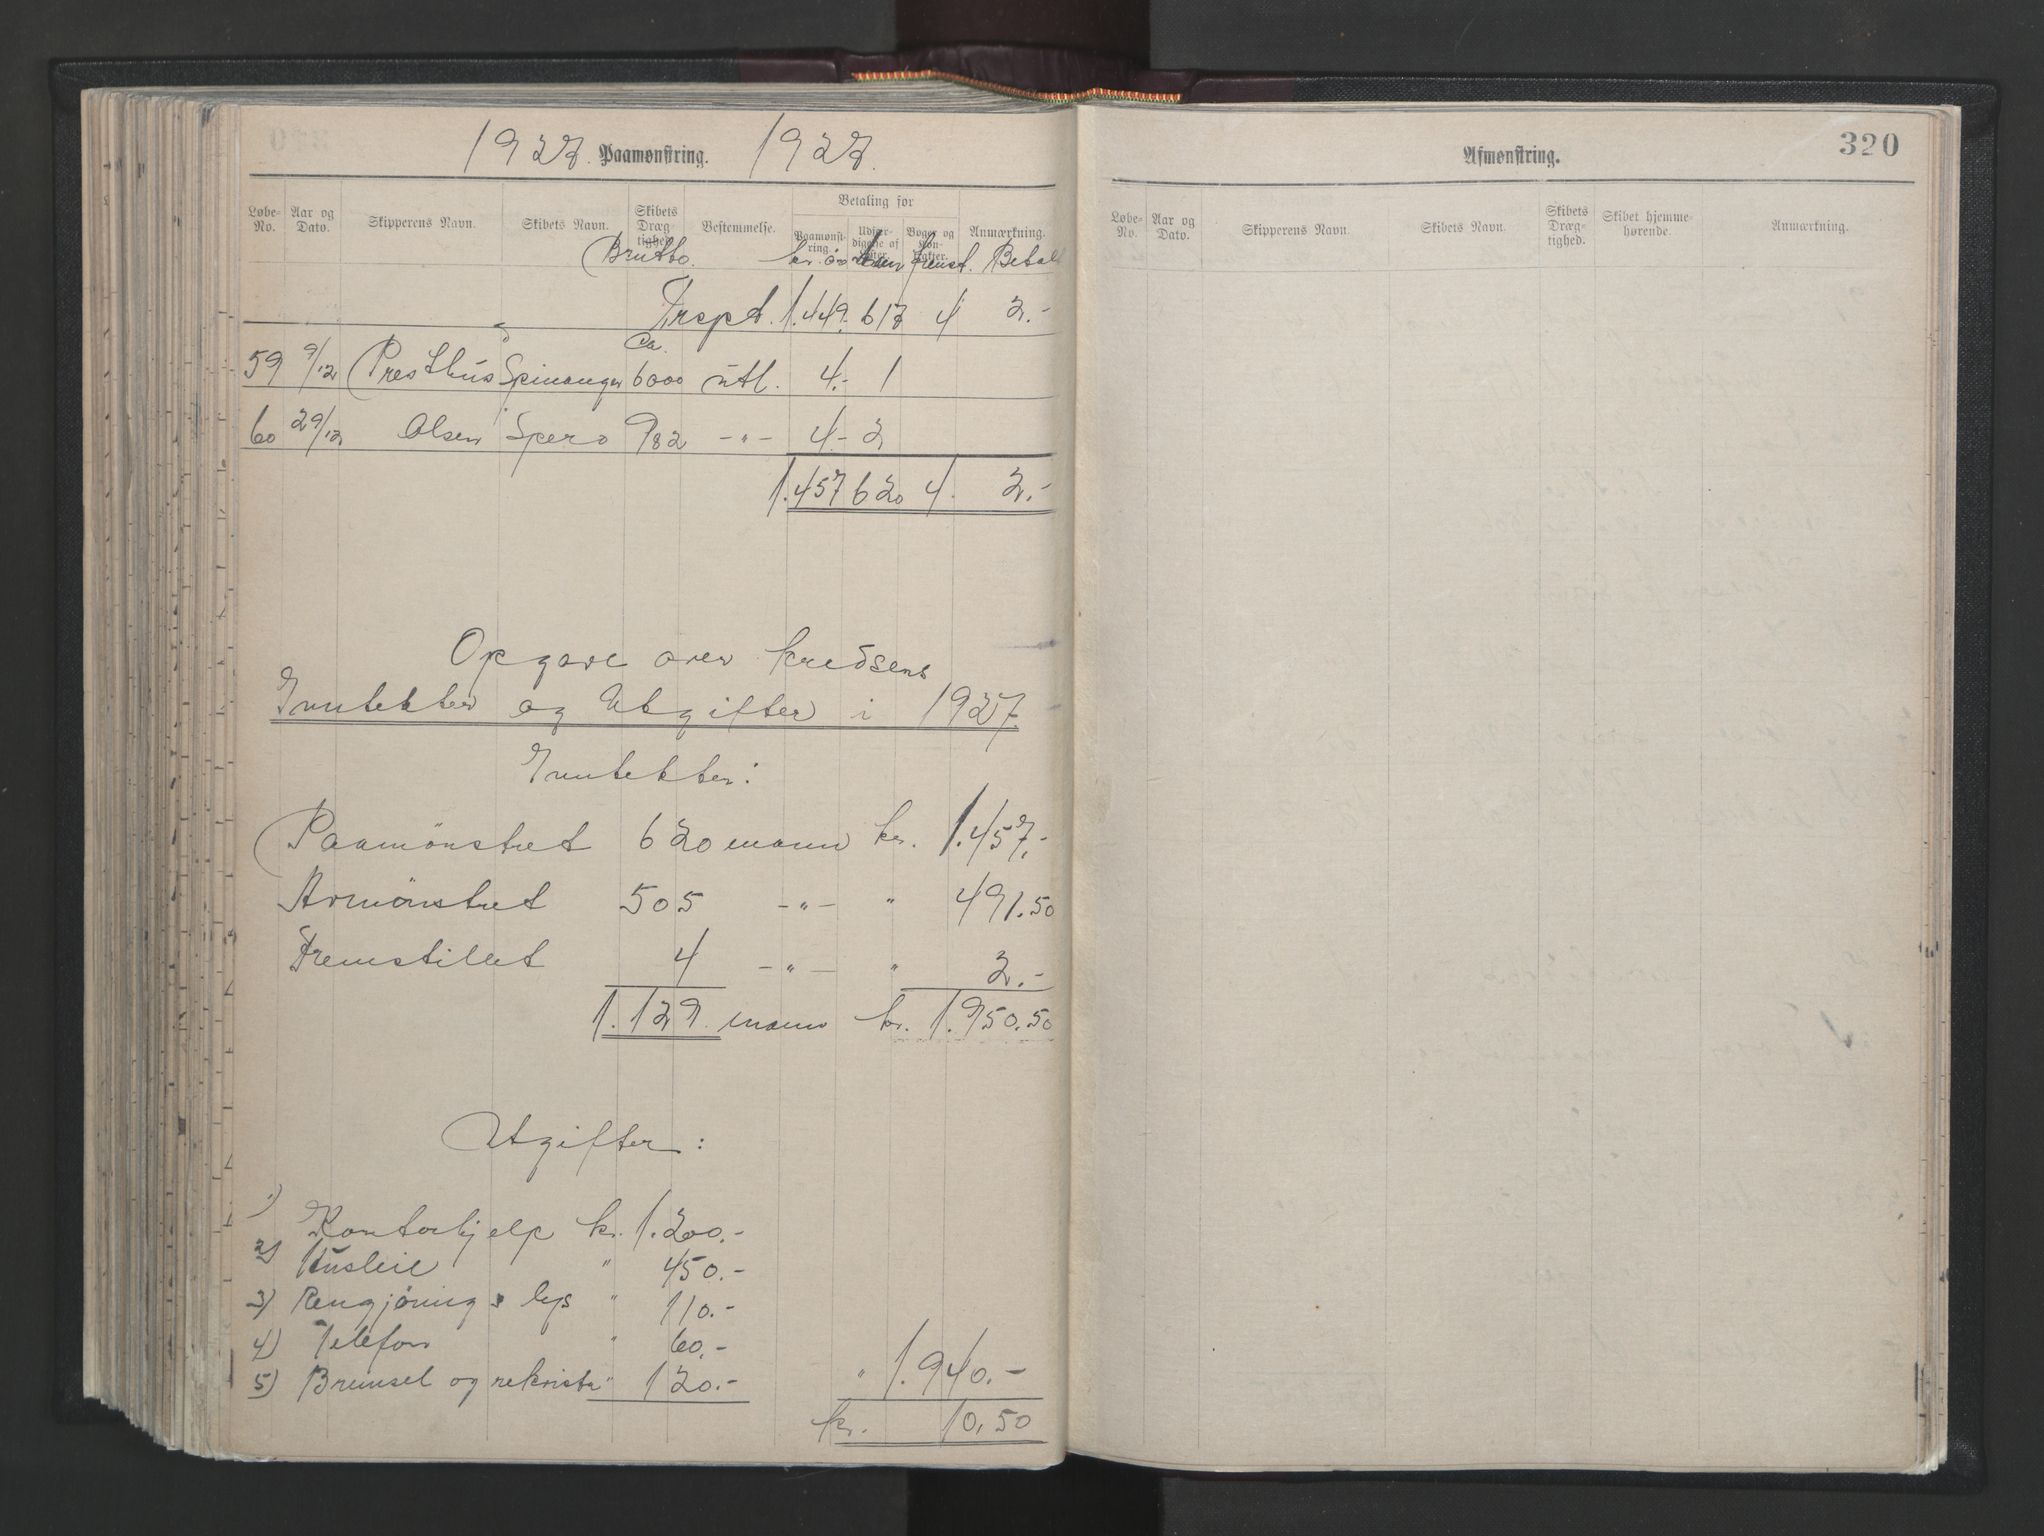 1927. Paamønstring. 1927.
Løbe-No. Aar og Dato. Skipperens Navn. Skibets Navn. Skibets Dræg-tighed. Bestemmelse. Betaling for Paamønst-ring. Anmærkning.
Brutto. kr. øre Betalt
Trspt. 1.449. 617 4 2.-
ca.
59 9/12 Presthus Spinanger 6000 utl. 4.- 1
60 29/12 Olsen Spero 982 -"- 4.- 2
1.457 620 4. 2.-
Opgave over kredsens
Inntekter og Utgifter i 1927.
Inntekter:
Paamönstret 620 mann kr. 1.457,-
Avmönstret 505 -"- " 491.50
Fremstillet 4 -"- " 2.-
1.129. mann kr. 1.950.50
Utgifter:
1) Kontorhjelp kr. 1.200.-
2) Husleie " 450.-
3) Rengjöring & lys " 110.-
4) Telefon " 60.-
5) Brensel og rekvisita " 120.- " 1.940.-
kr. 10,50
Afmønstring. 320
Løbe-No. Aar og Dato. Skipperens Navn. Skibets Navn. Skibets Dræg-tighed. Skibet hjemme-hørende. Anmærkning.